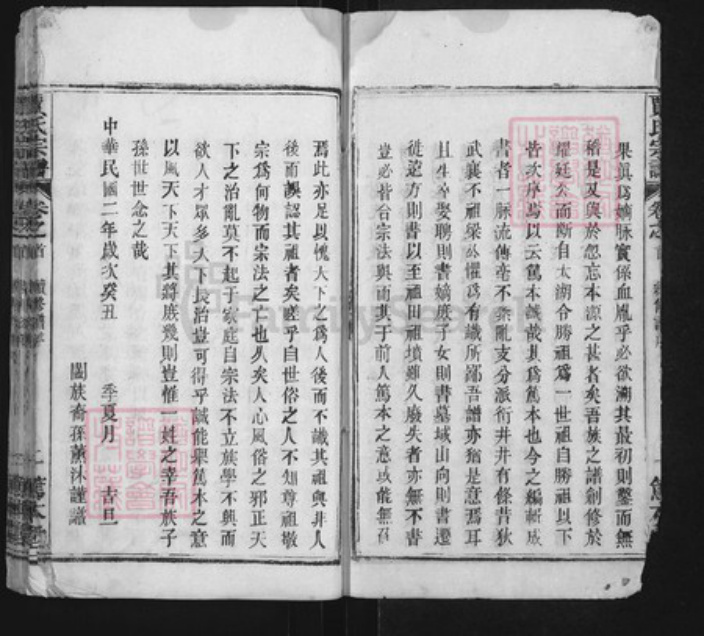 果眞爲嫡脉實係血胤乎必欲溯其最初則鑿而無
稽是又與於忽忘本源之甚者矣吾族之譜創修於
耀廷公而斷自太湖合勝祖爲一世祖自勝祖以下
皆次序焉以云篤本誠哉其爲篤本也今之編輯成
書者一脉流傳毫不紊亂支分派衍井井有條昔狄
武襄不祖梁公懼爲有識所鄙吾譜亦猶是意焉耳
且生卒娶聘則書嫡庶子女則書墓域山向則書遷
徙遠方則書以至祖田祖墳雖久廢失者亦無不書
豈必皆合宗法與而其于前人篤本之意或能無負
焉此亦足以愧天下之爲人後而不識其祖與非人
後而誤認其祖者矣嗟乎自世俗之人不知尊祖敬
宗爲何物而宗法之亡也久矣人心風俗之邪正天
下之治亂莫不起于家庭自宗法不立族學不興而
欲人才眾多天下長治豈可得乎誠能舉篤本之意
以風天下天下其將庶幾則豈惟一姓之幸吾族子
孫世世念之哉
中華民國二年歲次癸丑 季夏月 吉旦
闔族裔孫薰沐謹譔
氏宗譜 卷之首 篤本
FamilySearch